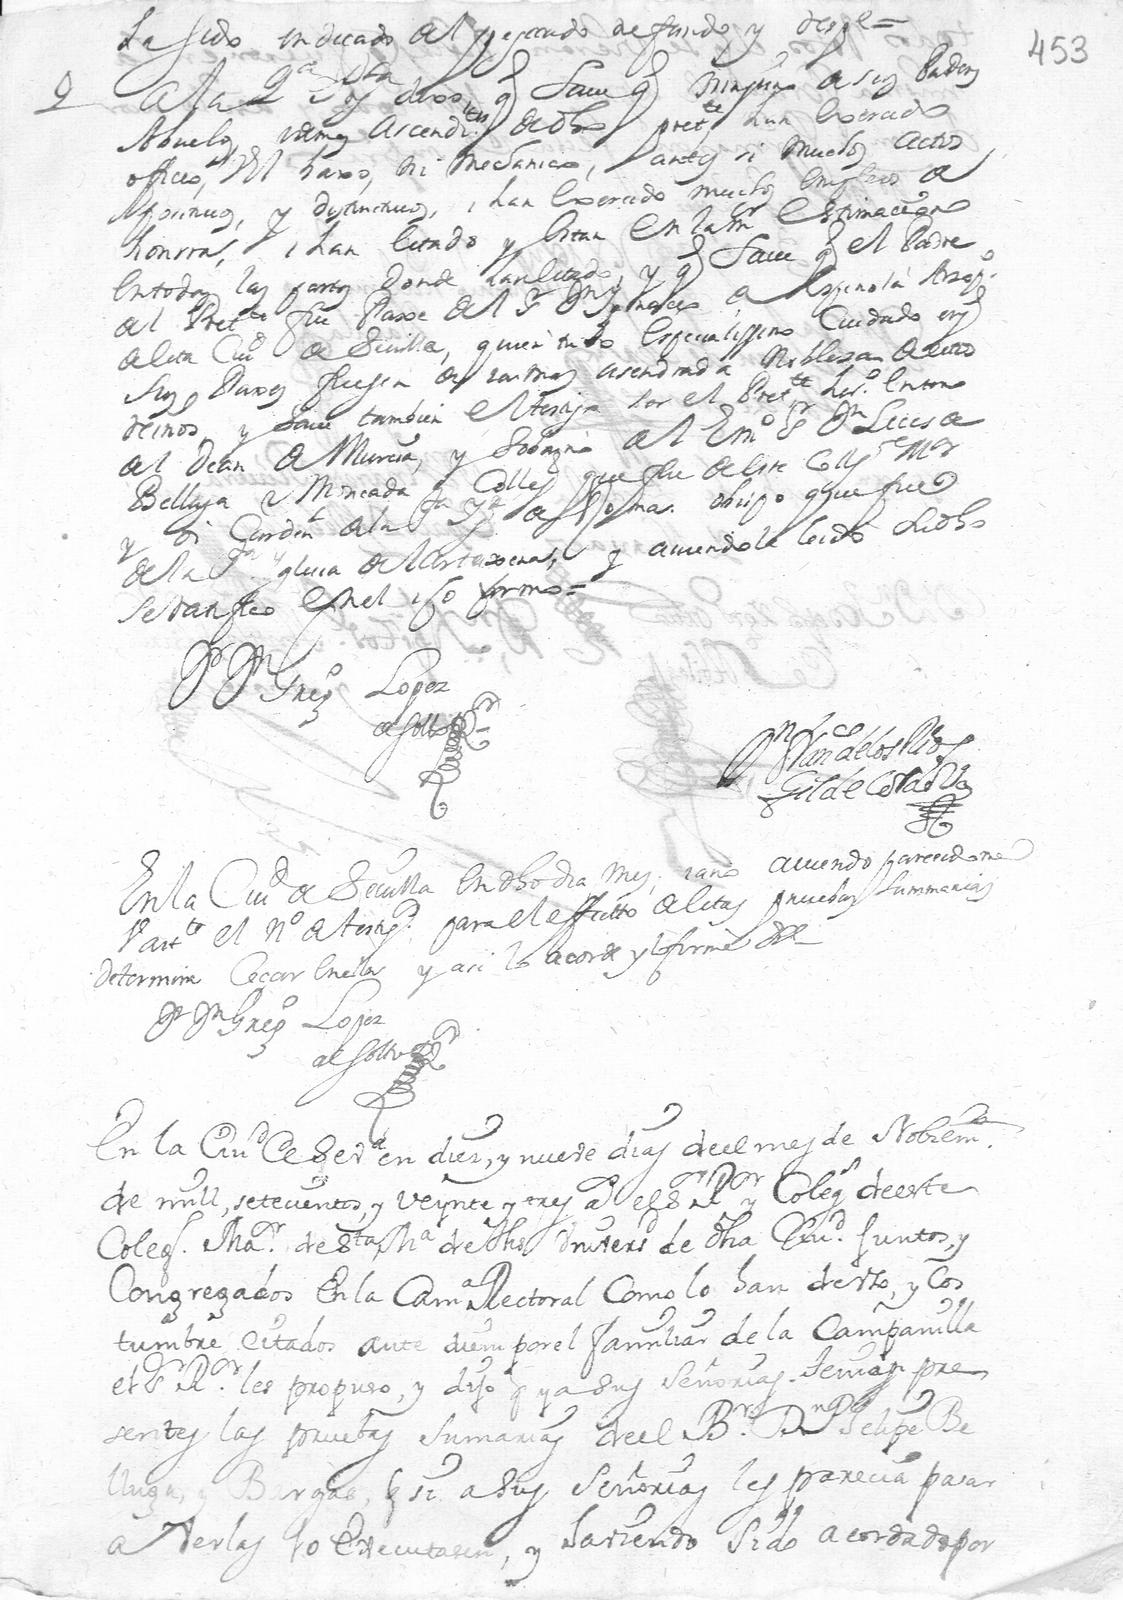 453
La sido indicado al pecado nefando y
2 A la 2ª dixo, q save q ninguno de sus Padres
Abuelos, ni demas Ascendtes de dho prette han exercido
officios, vil, baxo, ni mechanico, antes si muchos actos
positivos, y distintivos, i han exercido muchos empleos de
honrra, i han estado y estan en la mr estimacion
en todas las partes donde han estado, y q save q el Padre
del Prette fue Paxe del Sr Dn de Espinola Arzpo
de esta Ciud de Sevilla, quien tubo especialissimo cuidado en q
sus Paxes fuesen de la mas acendrada Nobleza de estos
Reinos y save tambien el testigo ser el Prette herº entero
del Dean de Murcia, y Sobrino del Emº Sr Dn Luis de
Belluga y Moncada Colleg que fue de este Collº Mor
y oi Cardenl de la Sta Yga de Roma. obispo q que fue
de la Sta yglecia de Cartaxena, y auiendole leido su dho
se ratifico en el i lo firmo =
Dr Dn Gregº Lopez
de Soltto Rr
Dn Franco de los Rios
Gil de Cordova
En la Ciud de Sevilla en dho dia mes, i año auiendo parecidome
vastte el Nº de testigs para el effecto de estas pruebas summarias
determine cesar en ellas y asi lo acorde y lo firme
Dr Dn Gregº Lopez
de Soltto Rr
En la Ciud de Seva en diez, y nueve dias de el mes de Nobiembe
de mill, setecientos, y veynte y tres as el Sr Ror y Colegs de este
Coleg. Mar. de Sta Ma de Jhs Univerd de dha Ciud. Juntos, y
Congregados En la Cama Rectoral Como lo han de vso, y Cos
tumbre Citados ante diem por el familiar de la Campanilla
el Sr Ror. les propuso, y dijo q ya sus señorias tenian pre
sentes las pruebas sumarias de el Br. Dn Felipe Be
lluga, y Bargas, q si a sus señorias les parecia pasar
a verlas lo executasen, y haviendo sido acordado por